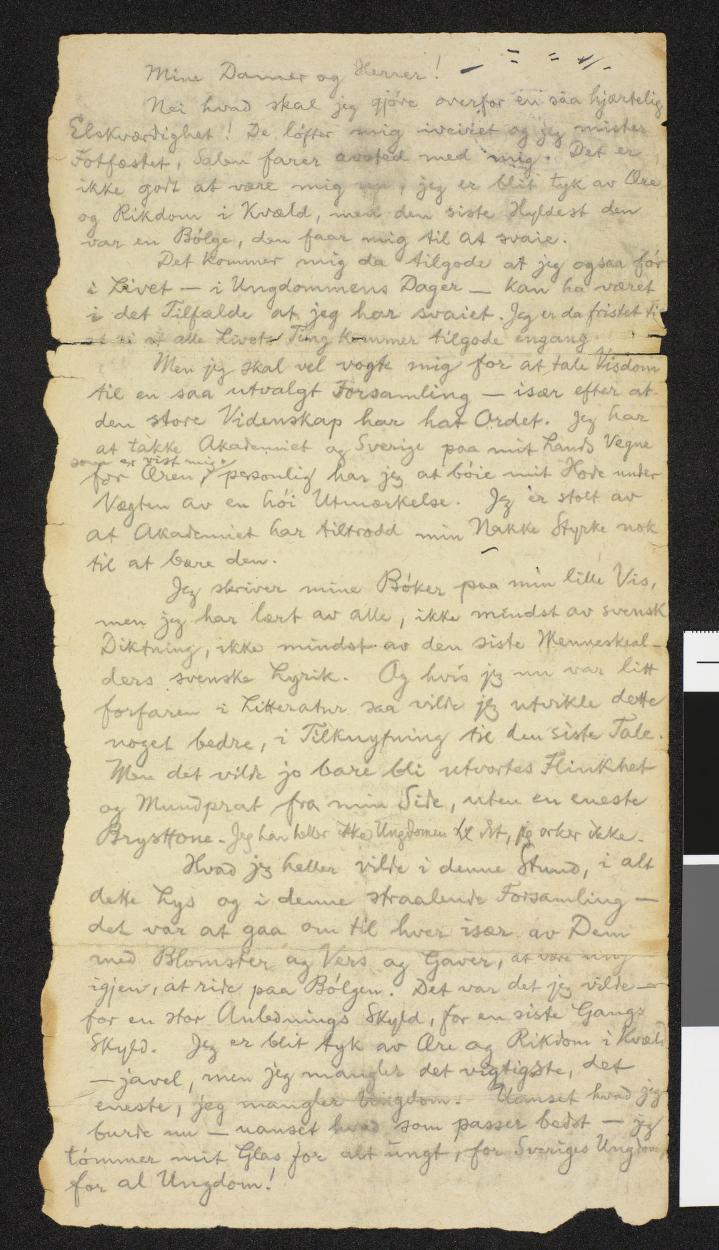 Mine Damer og Herrer!
Nei hvad skal jeg gjøre overfor en saa hjærtelig
Elskværdighet! De løfter mig iveiret og jeg mister
Fotfæstet, Salen farer avsted med mig. Det er
ikke godt at være mig nu, jeg er blit tyk av Ære
og Rikdom i Kvæld, men den siste Hyldest den
var en Bølge, den faar mig til at svaie.
Det kommer mig da tilgode at jeg ogsaa før
i Livet — i Ungdommens Dager — kan ha været
i det Tilfælde at jeg har svaiet. Jeg er da fristet til
at si at alle Livets Ting kommer tilgode engang.
Men jeg skal vel vogte mig for at tale Visdom
til en saa utvalgt Forsamling — især efter at
den store Videnskap har hat Ordet. Jeg har
at takke Akademiet og Sverige paa mit Lands Vegne
som er vist mig.
for Æren, personlig har jeg at bøie mit Hode under
Vægten av en høi Utmærkelse. Jeg er stolt av
at Akademiet har tiltrodd min Nakke Styrke nok
til at bære den.
Jeg skriver mine Bøker paa min lille Vis,
men jeg har lært av alle, ikke mindst av svensk
Diktning, ikke mindst av den siste Menneskeal-
ders svenske Lyrik. Og hvis jeg nu var litt
forfaren i Litteratur saa vilde jeg utvikle dette
noget bedre, i Tilknytning til den siste Tale.
Men det vilde jo bare bli utvortes Flinkhet
og Mundprat fra min Side, uten en eneste
Brysttone. Jeg har heller ikke Ungdomen til det, jeg orker ikke.
Hvad jeg heller vilde i denne Stund, i alt
dette Lys og i denne straalende Forsamling —
det var at gaa om til hver især av Dem
med Blomster og Vers og Gaver, at være ung
igjen, at ride paa Bølgen. Det var det jeg vilde —
for en stor Anlednings Skyld, for en siste Gangs
Skyld. Jeg er blit tyk av Ære og Rikdom i Kvæld
— javel, men jeg mangler det vigtigste, det
eneste, jeg mangler Ungdom. Uanset hvad jeg
burde nu — uanset hvad som passer bedst — jeg
tømmer mit Glas for alt ungt, for Sveriges Ungdom,
for al Ungdom!